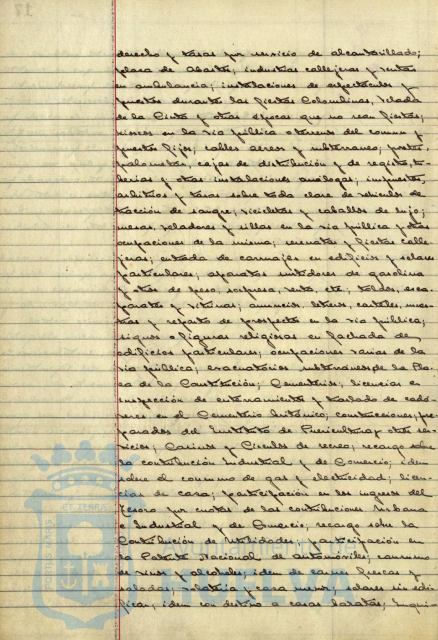 derecho y tasas por servicio de alcantarillado;
plaza de Abastos; industrias callejeras y ventas
en ambulancia; instalaciones de espectáculos y
puestos durante las fiestas Colombinas, Velada
de la Cinta y otras épocas que no sean fiestas;
kioscos en la vía pública o terrenos del común y
puestos fijos; cables aéreos y subterráneos; postes,
palometas, cajas de distribución y de registro, tu-
berías y otras instalaciones análogas; impuestos,
arbitrios y tasas sobre toda clase de vehículos de
tracción de sangre; bicicletas y caballos de lujo;
mesas, veladores y sillas en la vía pública y otras
ocupaciones de la misma; serenatas y fiestas calle-
jeras; entrada de carruajes en edificios y solares
particulares; aparatos surtidores de gasolina
y otros de peso, sorpresa, venta, etc; toldos, esca-
parates y vitrinas; anuncios, letreros, carteles, mues-
tras y reparto de prospectos en la vía pública;
signos o figuras religiosas en fachada de
edificios particulares; ocupaciones varias de la
vía pública; evacuatorios subterráneos de la Pla-
za de la Constitución; Cementerios; licencias e
inspección de enterramientos y traslado de cadá-
veres en el Cementerio británico; construcciones; pre-
parados del Instituto de Puericultura y otros ser-
vicios; Casinos y Círculos de recreo; recargo sobre
la contribución Industrial y de Comercio; idem
sobre el consumo de gas y electricidad; licen-
cias de caza; participación en los ingresos del
Tesoro por cuotas de las contribuciones Urbana
e Industrial y de Comercio; recargo sobre la
Contribución de Utilidades; participación en
la Patente Nacional de automóviles; consumo
de vinos y alcoholes; idem de carnes frescas y
saladas; volatería y caza menor; solares sin edi-
ficar; idem con destino a casas baratas; Inquili